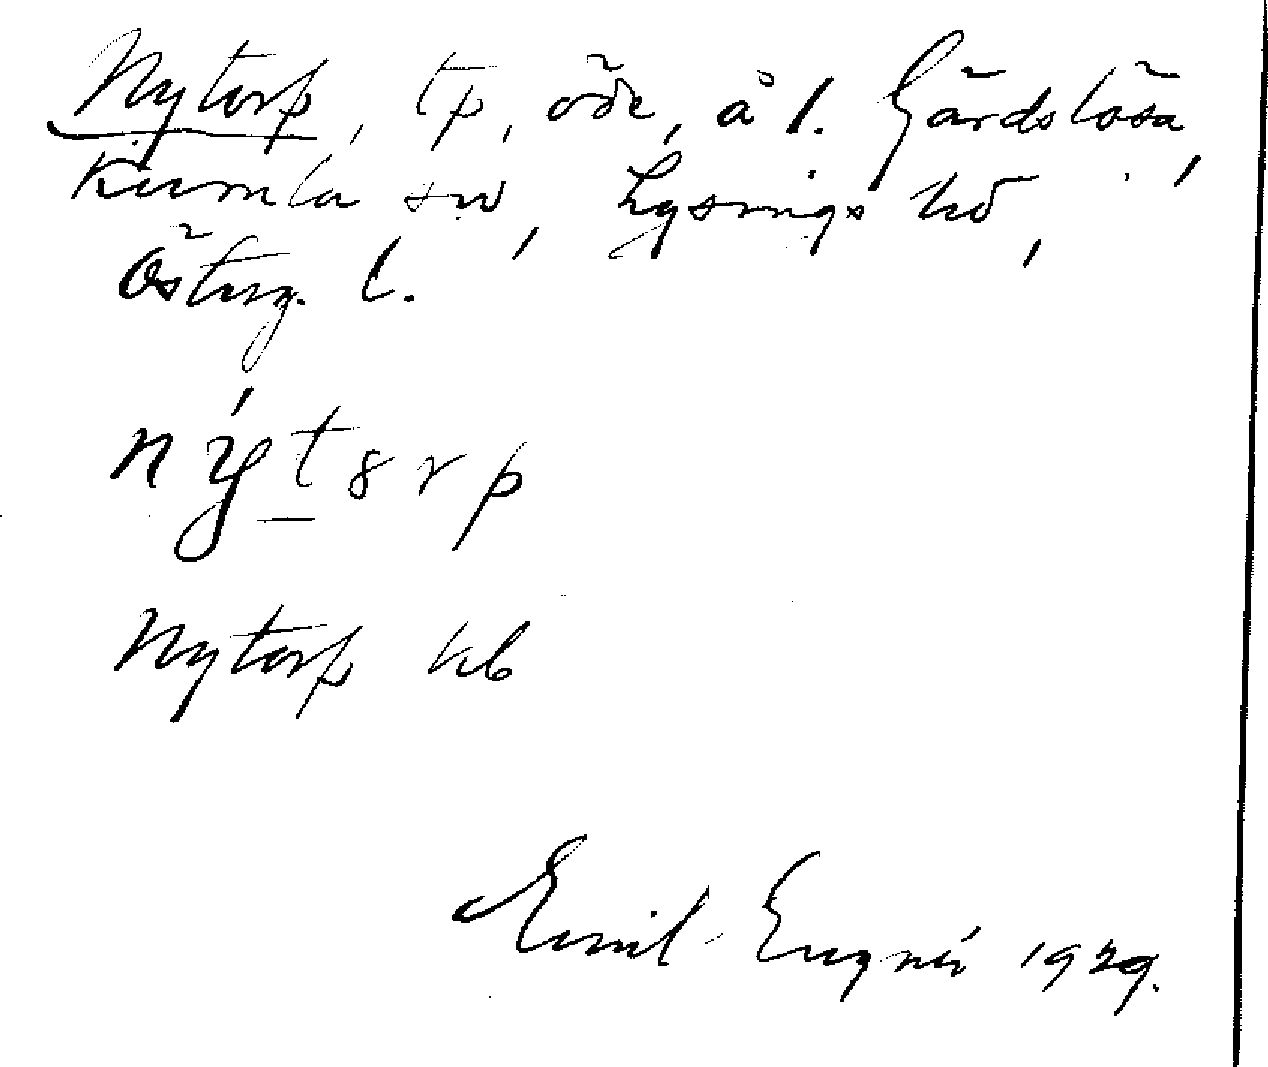 Nytorp, tp, öde, å l. Gärdslösa,
Kumla sn, Lysings hd,
Österg. l.
nýt8rp
Nytorp kb
Emil Engnér 1929.